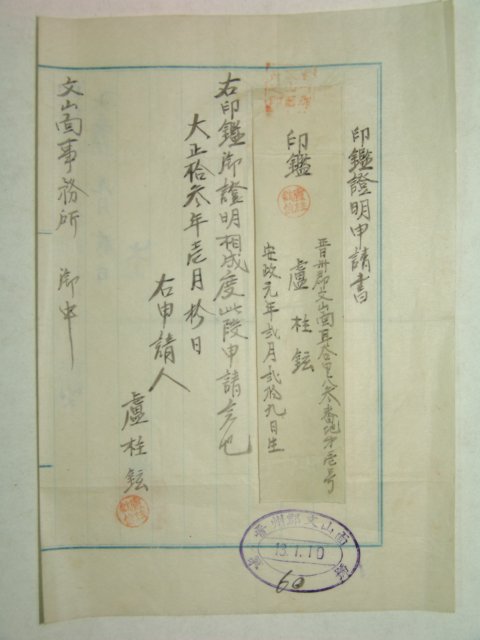 印鑑證明申請書
晋州郡文山面耳谷里八六番地ノ壱号
印鑑
盧柱鉉
安政元年弐月弐拾九日生
右印鑑御證明相成度此段申請候也
大正拾参年壱月拾日
右申請人
盧柱鉉
文山面事務所 御中
晋州郡文山面
13.1.10
60